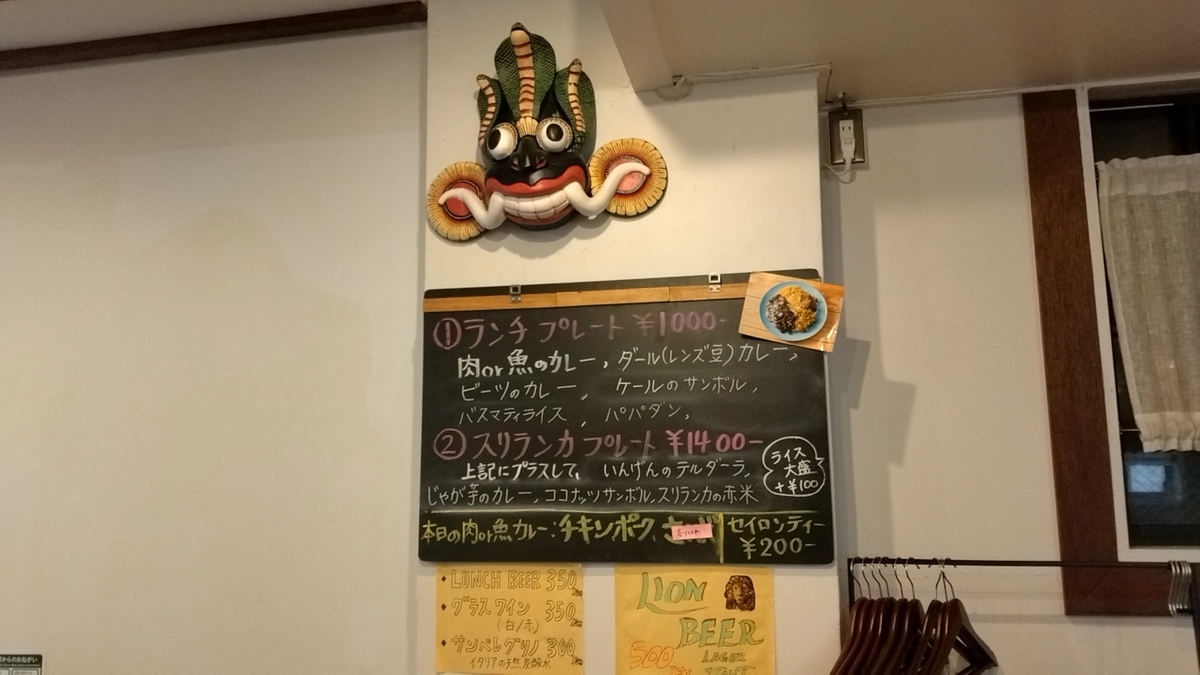 ①ランチ プレート ¥1000-
肉or魚のカレー, ダール(レンズ豆)カレー,
ビーツのカレー, ケールのサンボル,
バスマティライス, パパダン,
②スリランカプレート ¥1400-
上記にプラスして、いんげんのテルダーラ,
じゃが芋のカレー, ココナッツサンボル, スリランカの赤米
ライス
大盛
+¥100
本日の肉or魚カレー:チキンポーク
セイロンティー
¥200-
・LUNCH BEER 350
・グラスワイン 350
(白/赤)
・サンペレグリノ 300
イタリアの天然炭酸水
LION
BEER
LAGER
500